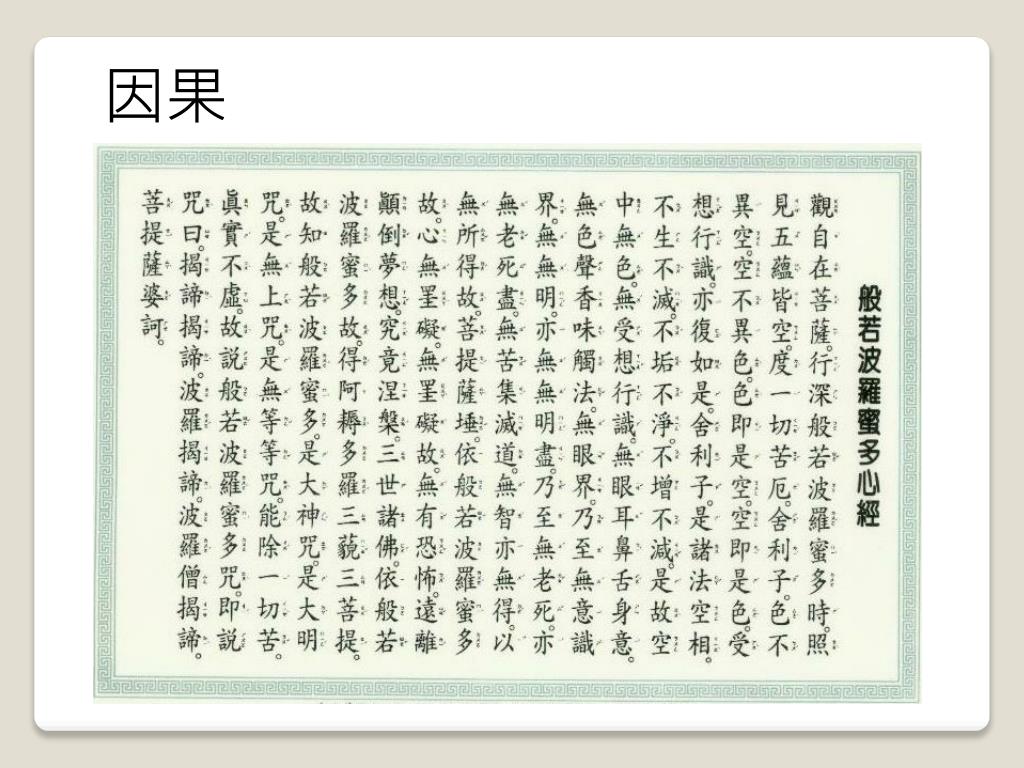 因果
般若波羅蜜多心經
觀自在菩薩。行深般若波羅蜜多時。照
見五蘊皆空。度一切苦厄。舍利子。色不
異空。空不異色。色即是空。空即是色。受
想行識。亦復如是。舍利子。是諸法空相。
不生不滅。不垢不淨。不增不減。是故空
中無色。無受想行識。無眼耳鼻舌身意。
無色聲香味觸法。無眼界。乃至無意識
界。無無明。亦無無明盡。乃至無老死。亦
無老死盡。無苦集滅道。無智亦無得。以
無所得故。菩提薩埵。依般若波羅蜜多
故。心無罣礙。無罣礙故。無有恐怖。遠離
顛倒夢想。究竟涅槃。三世諸佛。依般若
波羅蜜多故。得阿耨多羅三藐三菩提。
故知般若波羅蜜多。是大神咒。是大明
咒。是無上咒。是無等等咒。能除一切苦。
眞實不虛。故説般若波羅蜜多咒。即説
咒曰。揭諦揭諦。波羅揭諦。波羅僧揭諦。
菩提薩婆訶。